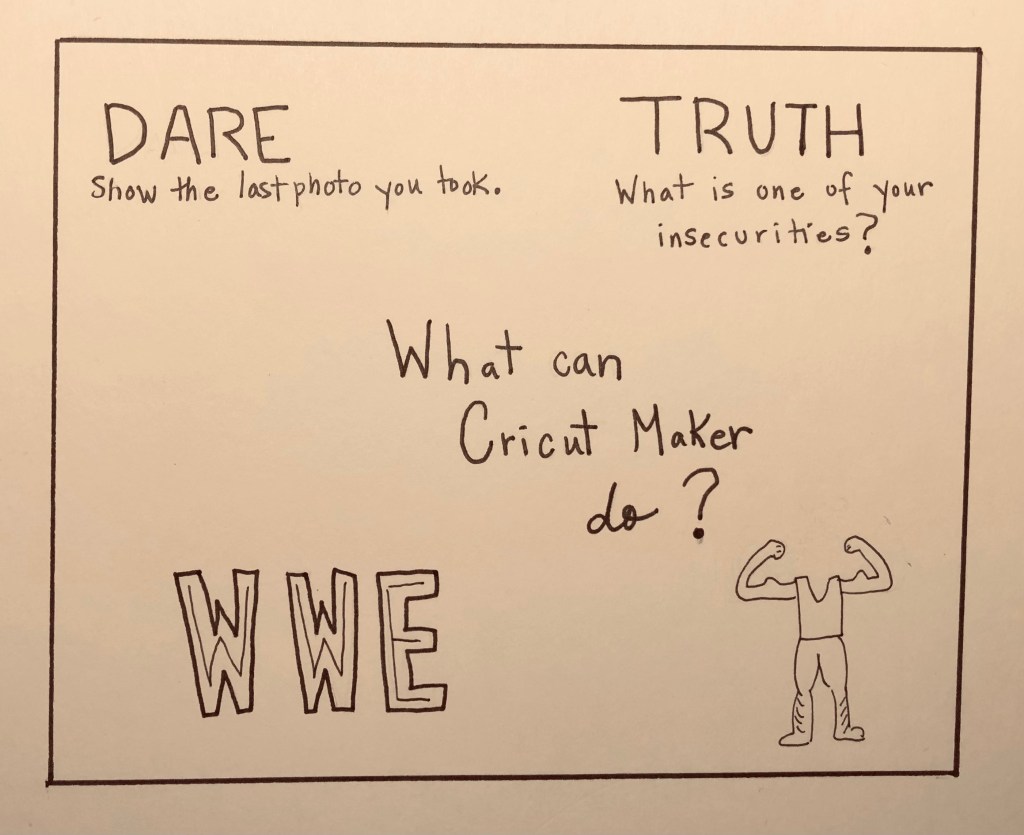 DARE
Show the last photo you took.
TRUTH
What is one of your
insecurities?
What can
Cricut Maker
do?
WWE